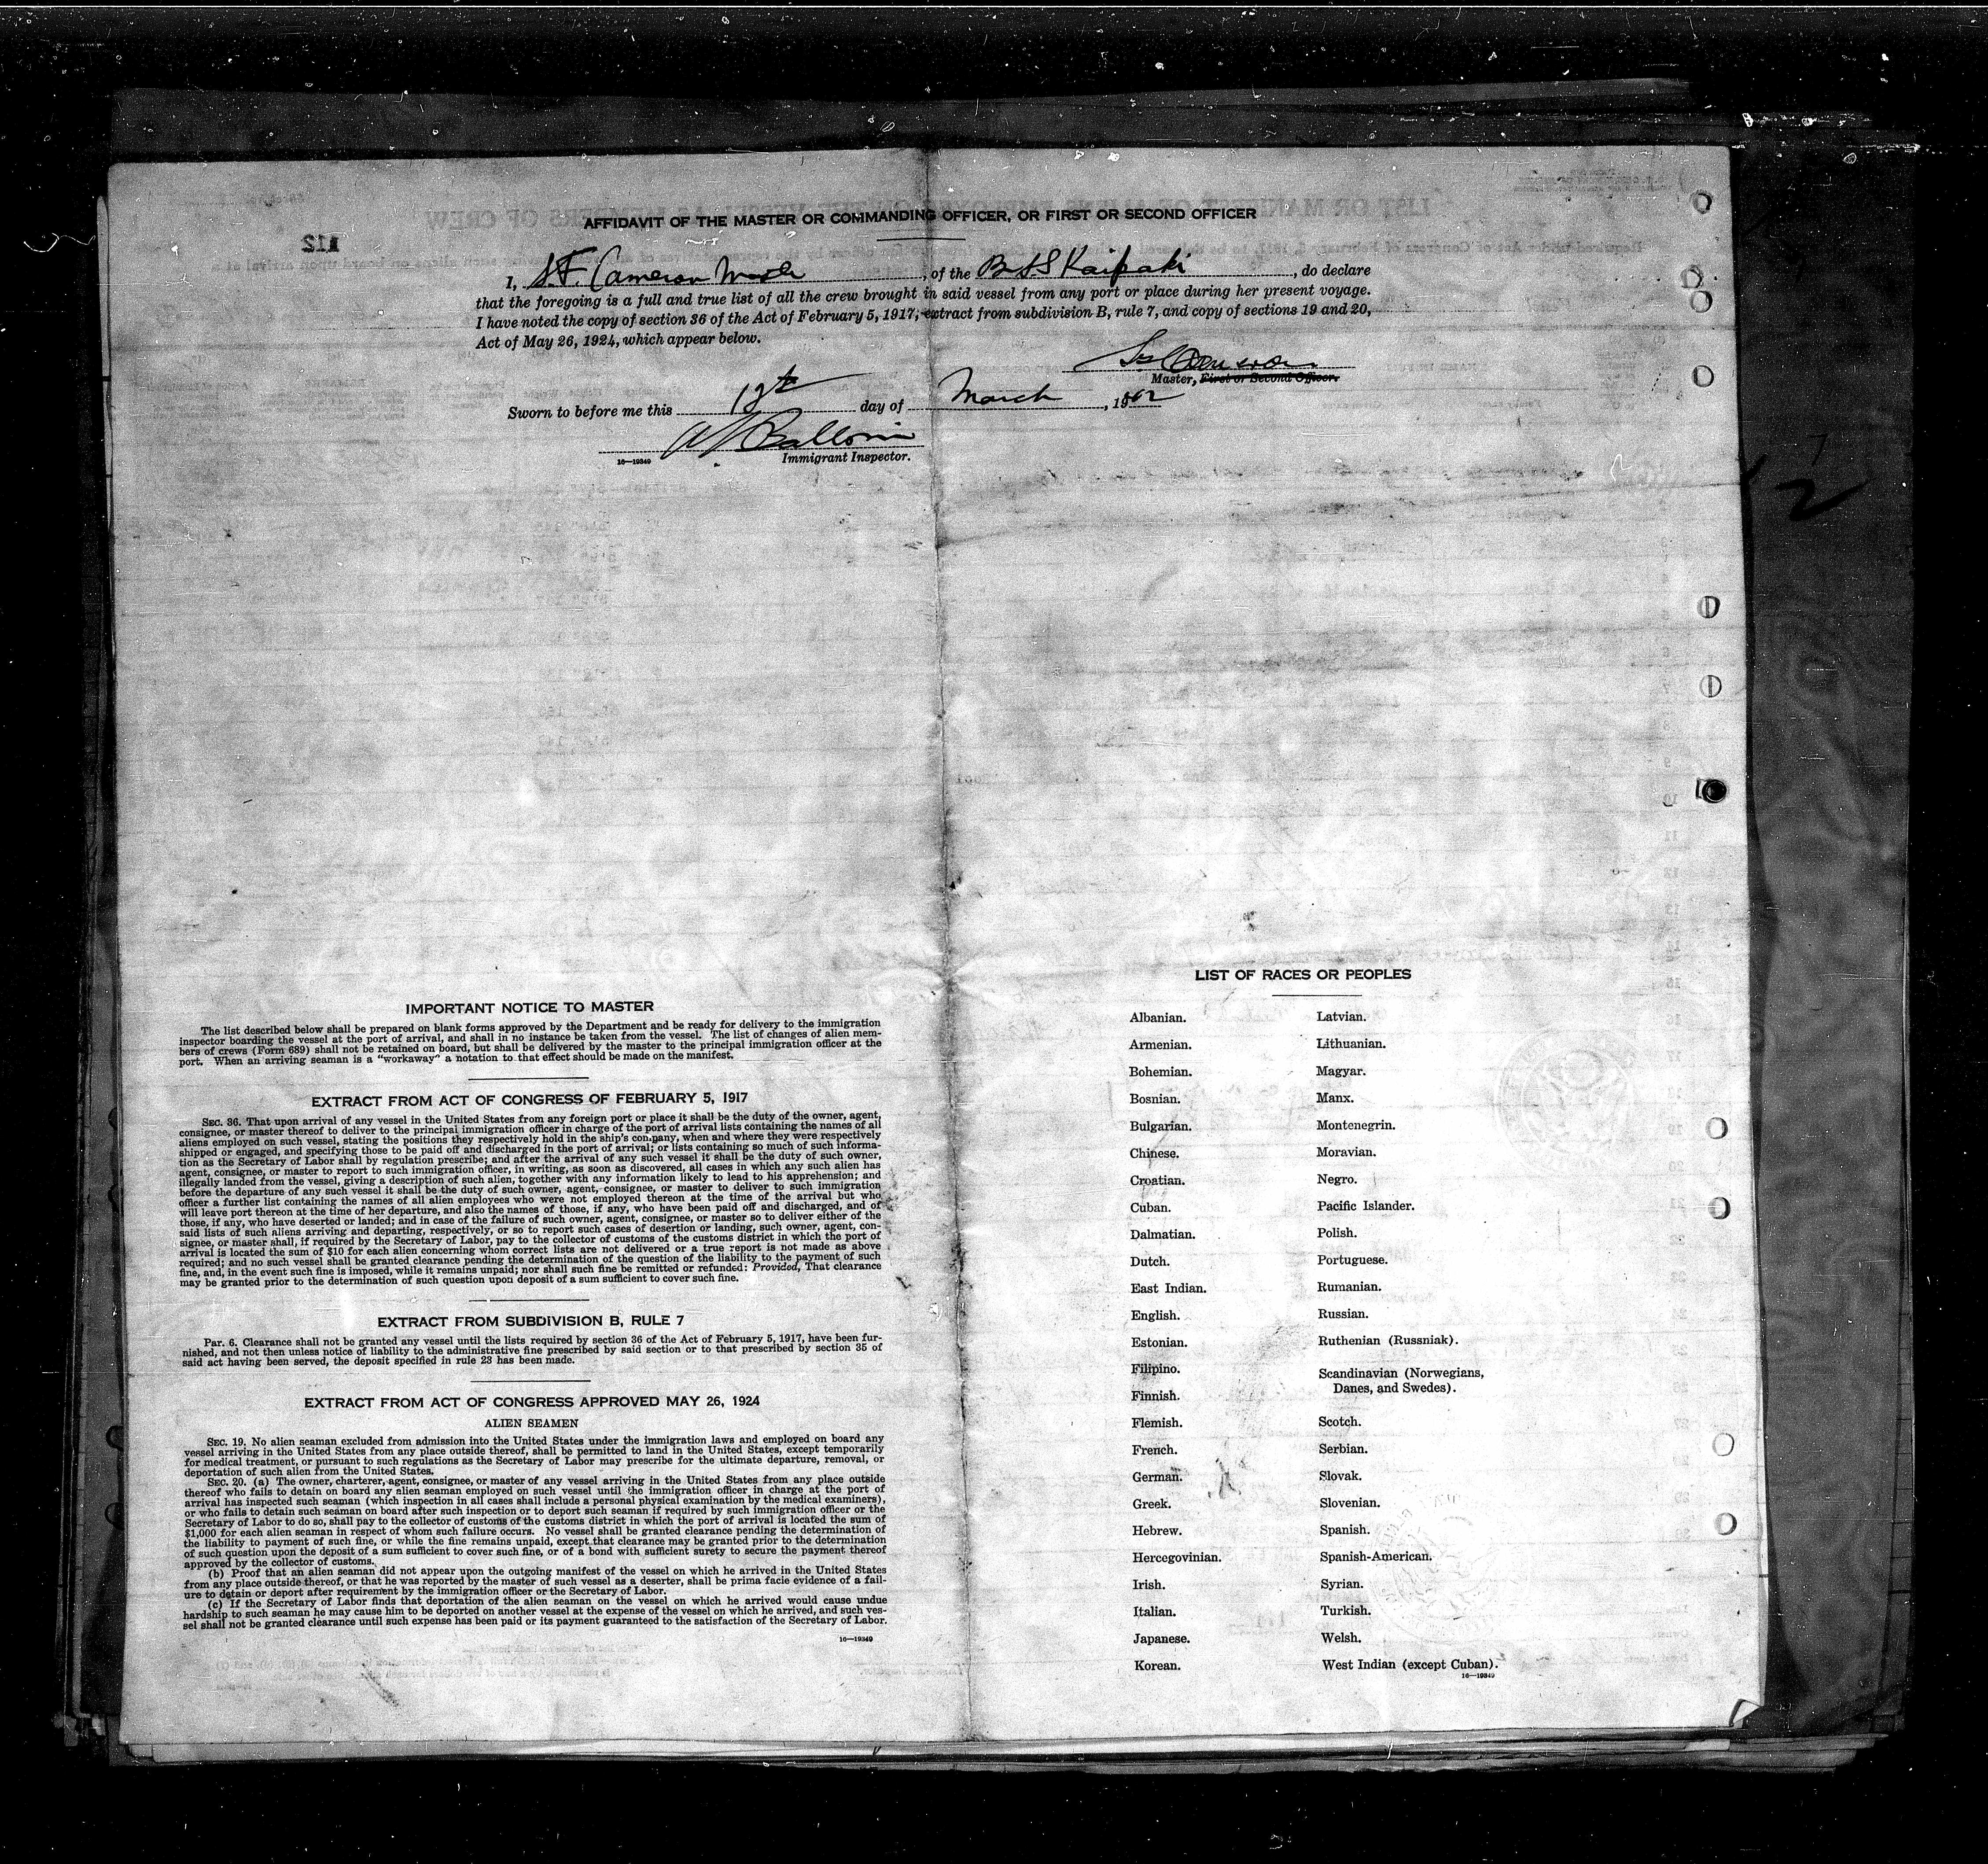 AFFIDAVIT OF THE MASTER OR COMMANDING OFFICER, OR FIRST OR SECOND OFFICER
112
I, S.F. Cameron Master, of the B SS Kaipaki, do declare
that the foregoing is a full and true list of all the crew brought in said vessel from any port or place during her present voyage.
I have noted the copy of section 36 of the Act of February 5, 1917, extract from subdivision B, rule 7, and copy of sections 19 and 20,
Act of May 26, 1924, which appear below.
Master, First or Second Officer.
Sworn to before me this day of March, 19
16—19349 Immigrant Inspector.
2
IMPORTANT NOTICE TO MASTER
The list described below shall be prepared on blank forms approved by the Department and be ready for delivery to the immigration
inspector boarding the vessel at the port of arrival, and shall in no instance be taken from the vessel. The list of changes of alien mem-
bers of crews (Form 689) shall not be retained on board, but shall be delivered by the master to the principal immigration officer at the
port. When an arriving seaman is a "workaway" a notation to that effect should be made on the manifest.
EXTRACT FROM ACT OF CONGRESS OF FEBRUARY 5, 1917
SEC. 36. That upon arrival of any vessel in the United States from any foreign port or place it shall be the duty of the owner, agent,
consignee, or master thereof to deliver to the principal immigration officer in charge of the port of arrival lists containing the names of all
aliens employed on such vessel, stating the positions they respectively hold in the ship's company, when and where they were respectively
shipped or engaged, and specifying those to be paid off and discharged in the port of arrival; or lists containing so much of such informa-
tion as the Secretary of Labor shall by regulation prescribe; and after the arrival of any such vessel it shall be the duty of such owner,
agent, consignee, or master to report to such immigration officer, in writing, as soon as discovered, all cases in which any such alien has
illegally landed from the vessel, giving a description of such alien, together with any information likely to lead to his apprehension; and
before the departure of any such vessel it shall be the duty of such owner, agent, consignee, or master to deliver to such immigration
officer a further list containing the names of all alien employees who were not employed thereon at the time of the arrival but who
will leave port thereon at the time of her departure, and also the names of those, if any, who have been paid off and discharged, and of
those, if any, who have deserted or landed; and in case of the failure of such owner, agent, consignee, or master so to deliver either of the
said lists of such aliens arriving and departing, respectively, or so to report such cases of desertion or landing, such owner, agent, con-
signee, or master shall, if required by the Secretary of Labor, pay to the collector of customs of the customs district in which the port of
arrival is located the sum of $10 for each alien concerning whom correct lists are not delivered or a true report is not made as above
required; and no such vessel shall be granted clearance pending the determination of the question of the liability to the payment of such
fine, and, in the event such fine is imposed, while it remains unpaid; nor shall such fine be remitted or refunded: Provided, That clearance
may be granted prior to the determination of such question upon deposit of a sum sufficient to cover such fine.
EXTRACT FROM SUBDIVISION B, RULE 7
Par. 6. Clearance shall not be granted any vessel until the lists required by section 36 of the Act of February 5, 1917, have been fur-
nished, and not then unless notice of liability to the administrative fine prescribed by said section or to that prescribed by section 35 of
said act having been served, the deposit specified in rule 23 has been made.
EXTRACT FROM ACT OF CONGRESS APPROVED MAY 26, 1924
ALIEN SEAMEN
SEC. 19. No alien seaman excluded from admission into the United States under the immigration laws and employed on board any
vessel arriving in the United States from any place outside thereof, shall be permitted to land in the United States, except temporarily
for medical treatment, or pursuant to such regulations as the Secretary of Labor may prescribe for the ultimate departure, removal, or
deportation of such alien from the United States.
SEC. 20. (a) The owner, charterer, agent, consignee, or master of any vessel arriving in the United States from any place outside
thereof who fails to detain on board any alien seaman employed on such vessel until the immigration officer in charge at the port of
arrival has inspected such seaman (which inspection in all cases shall include a personal physical examination by the medical examiners),
or who fails to detain such seaman on board after such inspection or to deport such seaman if required by such immigration officer or the
Secretary of Labor to do so, shall pay to the collector of customs of the customs district in which the port of arrival is located the sum of
$1,000 for each alien seaman in respect of whom such failure occurs. No vessel shall be granted clearance pending the determination of
the liability to payment of such fine, or while the fine remains unpaid, except that clearance may be granted prior to the determination
of such question upon the deposit of a sum sufficient to cover such fine, or of a bond with sufficient surety to secure the payment thereof
approved by the collector of customs.
(b) Proof that an alien seaman did not appear upon the outgoing manifest of the vessel on which he arrived in the United States
from any place outside thereof, or that he was reported by the master of such vessel as a deserter, shall be prima facie evidence of a fail-
ure to detain or deport after requirement by the immigration officer or the Secretary of Labor.
(c) If the Secretary of Labor finds that deportation of the alien seaman on the vessel on which he arrived would cause undue
hardship to such seaman he may cause him to be deported on another vessel at the expense of the vessel on which he arrived, and such ves-
sel shall not be granted clearance until such expense has been paid or its payment guaranteed to the satisfaction of the Secretary of Labor.
16—19349
LIST OF RACES OR PEOPLES
Albanian.
Armenian.
Bohemian.
Bosnian.
Bulgarian.
Chinese.
Croatian.
Cuban.
Dalmatian.
Dutch.
East Indian.
English.
Estonian.
Filipino.
Finnish.
Flemish.
French.
German.
Greek.
Hebrew.
Hercegovinian.
Irish.
Italian.
Japanese.
Korean.
Latvian.
Lithuanian.
Magyar.
Manx.
Montenegrin.
Moravian.
Negro.
Pacific Islander.
Polish.
Portuguese.
Rumanian.
Russian.
Ruthenian (Russniak).
Scandinavian (Norwegians,
Danes, and Swedes).
Scotch.
Serbian.
Slovak.
Slovenian.
Spanish.
Spanish-American.
Syrian.
Turkish.
Welsh.
West Indian (except Cuban).
16—19349